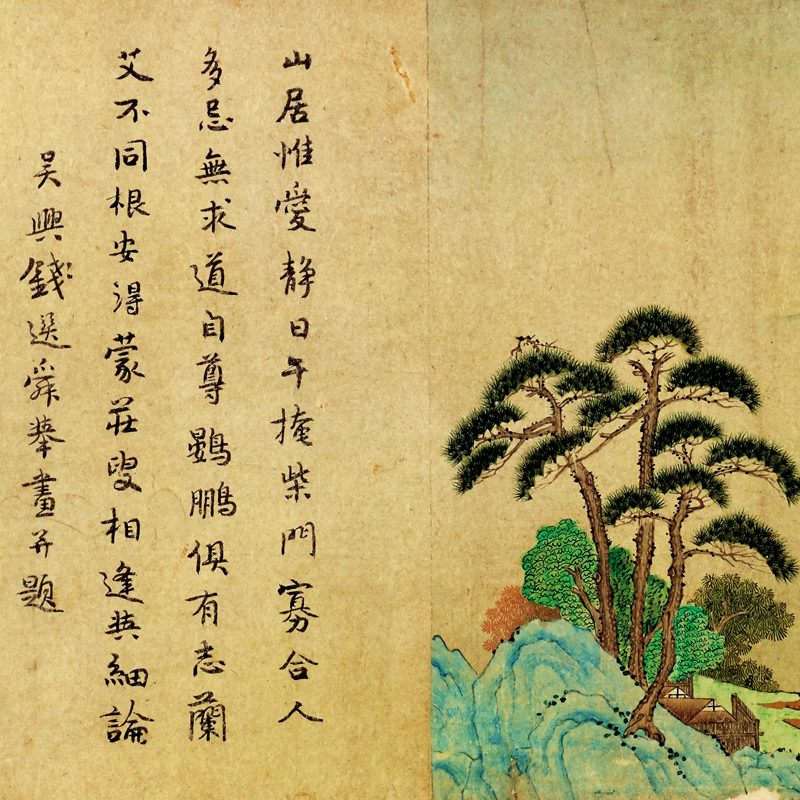 山居惟愛靜日午掩柴門寡合人
多忌無求道自尊鷃鵬俱有志蘭
艾不同根安得蒙莊叟相逢與細論
吳興錢選舜舉畫并題